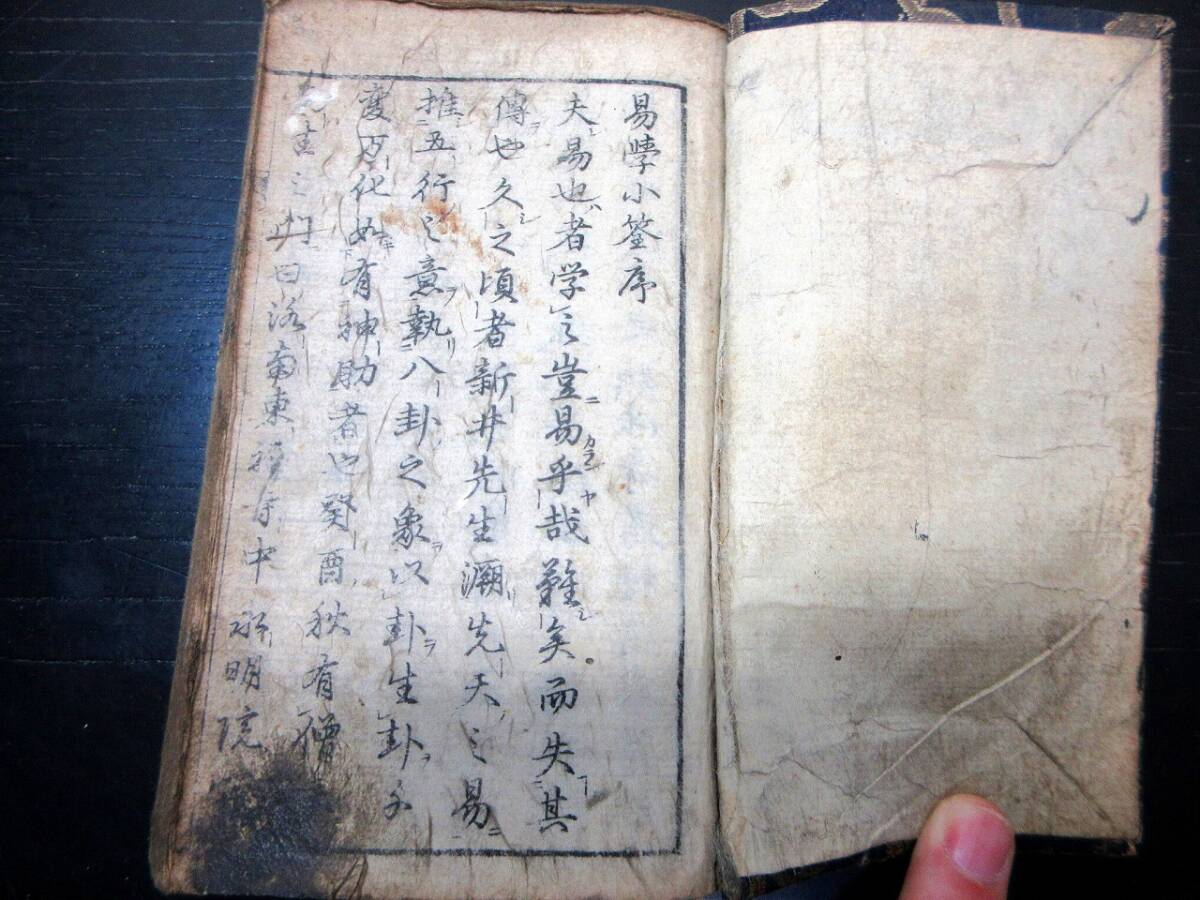 易学小筌序
夫易也者学之豈易乎哉難矣而失其
傳也久之頃者新井先生溯先天之易
推五行之意執八卦之象以卦生卦千
変万化如有神助者也癸酉秋有僧
之曰洛東寺中永明院